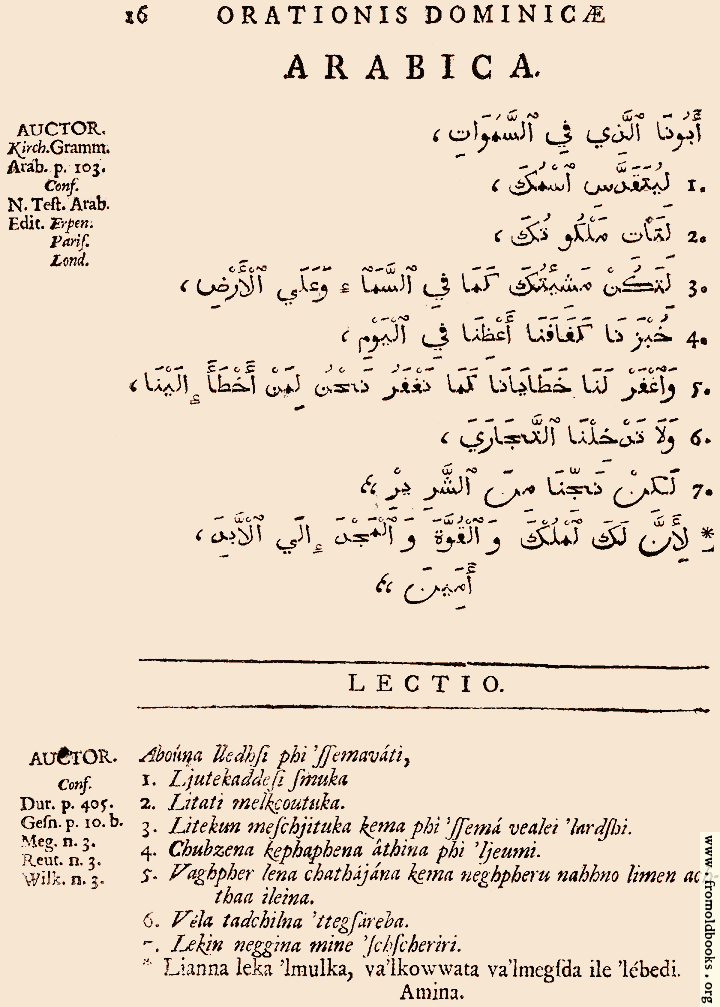 16 ORATIONIS DOMINICÆ
ARABICA.
AUCTOR.
Kirch. Gramm.
Arab. p. 103.
Conf.
N. Teſt. Arab.
Edit. Erpen.
Pariſ.
Lond.
أَبُونَا ٱلَّذِي فِي ٱلسَّمَوَاتِ ،
1. لِيَتَقَدَّس ٱسْمُكَ ،
2. لتَأت مَلَكُو تُكَ ،
3. لتَكُنْ مَشيئَتُكَ كَمَا فِي ٱلسَّمَا ء وَعَلَي ٱلْأَرْضِ ،
4. خُبْزَ نَا كَفَافَنَا أَعْطِنَا فِي ٱلْيَوْمِ ،
5. وَٱغْفِرْ لَنَا خَطَايَانَا كَمَا نَغْفِرُ نَحْنُ لِمَنْ أَخْطَأَ إِلَيْنَا ،
6. وَلَا تَدْخِلْنَا ٱلتَّجَارِي ،
7. لَكِنْ نَجِّنَا مِنَ ٱلشَّرِ يرْ ،،
* لِأَنَّ لَكَ لْمُلْكَ وَ ٱلْقُوَّةَ وَ ٱلْمَجْدَ إِلَي ٱلْأَبَدِ ،
أَمِينَ ،،
LECTIO.
AUCTOR.
Conf.
Dur. p. 405.
Geſn. p. 10. b.
Meg. n. 3.
Reut. n. 3.
Wilk. n. 3.
Aboúna lledhſi phi 'ſſemaváti,
1. Ljutekaddeſi ſmuka
2. Litati melkcoutuka.
3. Litekun meſchjituka kema phi 'ſſemá vealei 'lardſhi.
4. Chubzena kephaphena âthina phi 'ljeumi.
5. Vaghpher lena chathájána kema neghpheru nahhno limen ac
thaa ileina.
6. Véla tadchilna 'ttegſáreba.
7. Lekin neggina mine 'ſchſcheriri.
* Lianna leka 'lmulka, va'lkowwata va'lmegſda ile 'lébedi.
Amina.
www.fromoldbooks.org